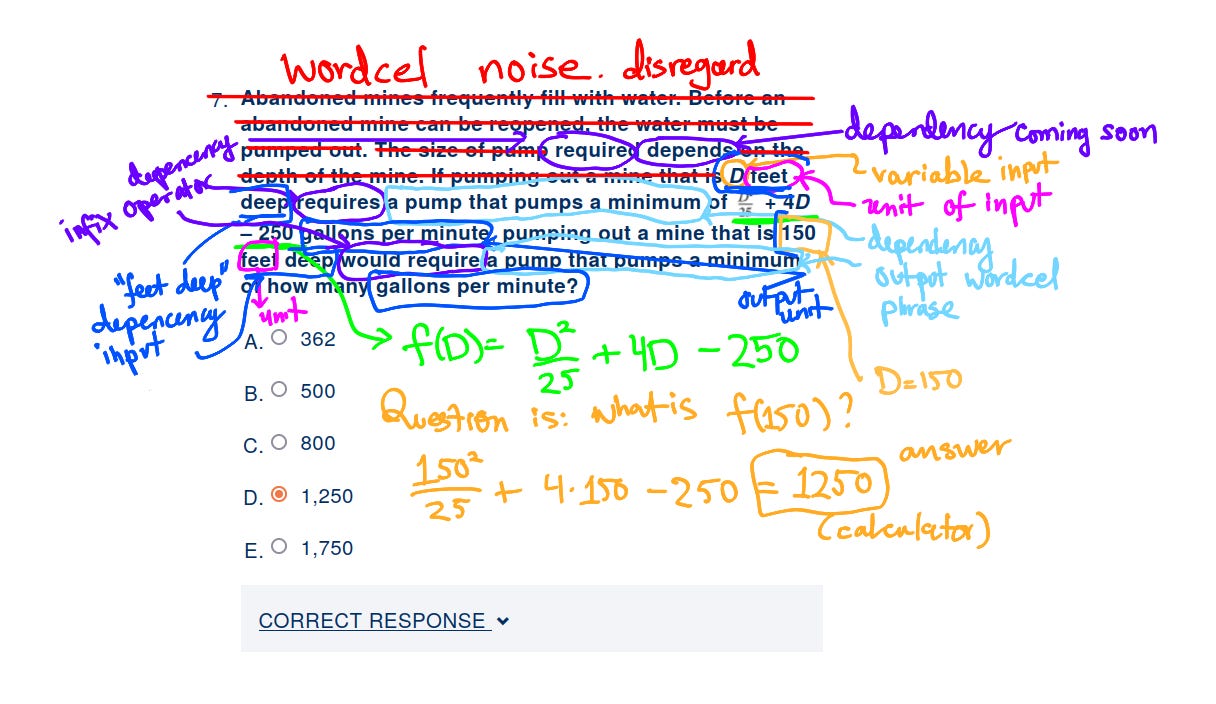 wordcel noise. disregard
7. Abandoned mines frequently fill with water. Before an
abandoned mine can be reopened, the water must be
pumped out. The size of pump required depends on the
depth of the mine. If pumping out a mine that is D feet
deep requires a pump that pumps a minimum of D²/25 + 4D
– 250 gallons per minute, pumping out a mine that is 150
feet deep would require a pump that pumps a minimum
of how many gallons per minute?
dependency coming soon
variable input
unit of input
depencency
infix operator
dependency
output wordcel
phrase
"feet deep"
depencency
input
unit
output
unit
f(D)= D²/25 + 4D - 250
D=150
Question is: what is f(150)?
150²/25 + 4·150 - 250 = 1250
answer
(calculator)
A. 362
B. 500
C. 800
D. 1,250
E. 1,750
CORRECT RESPONSE